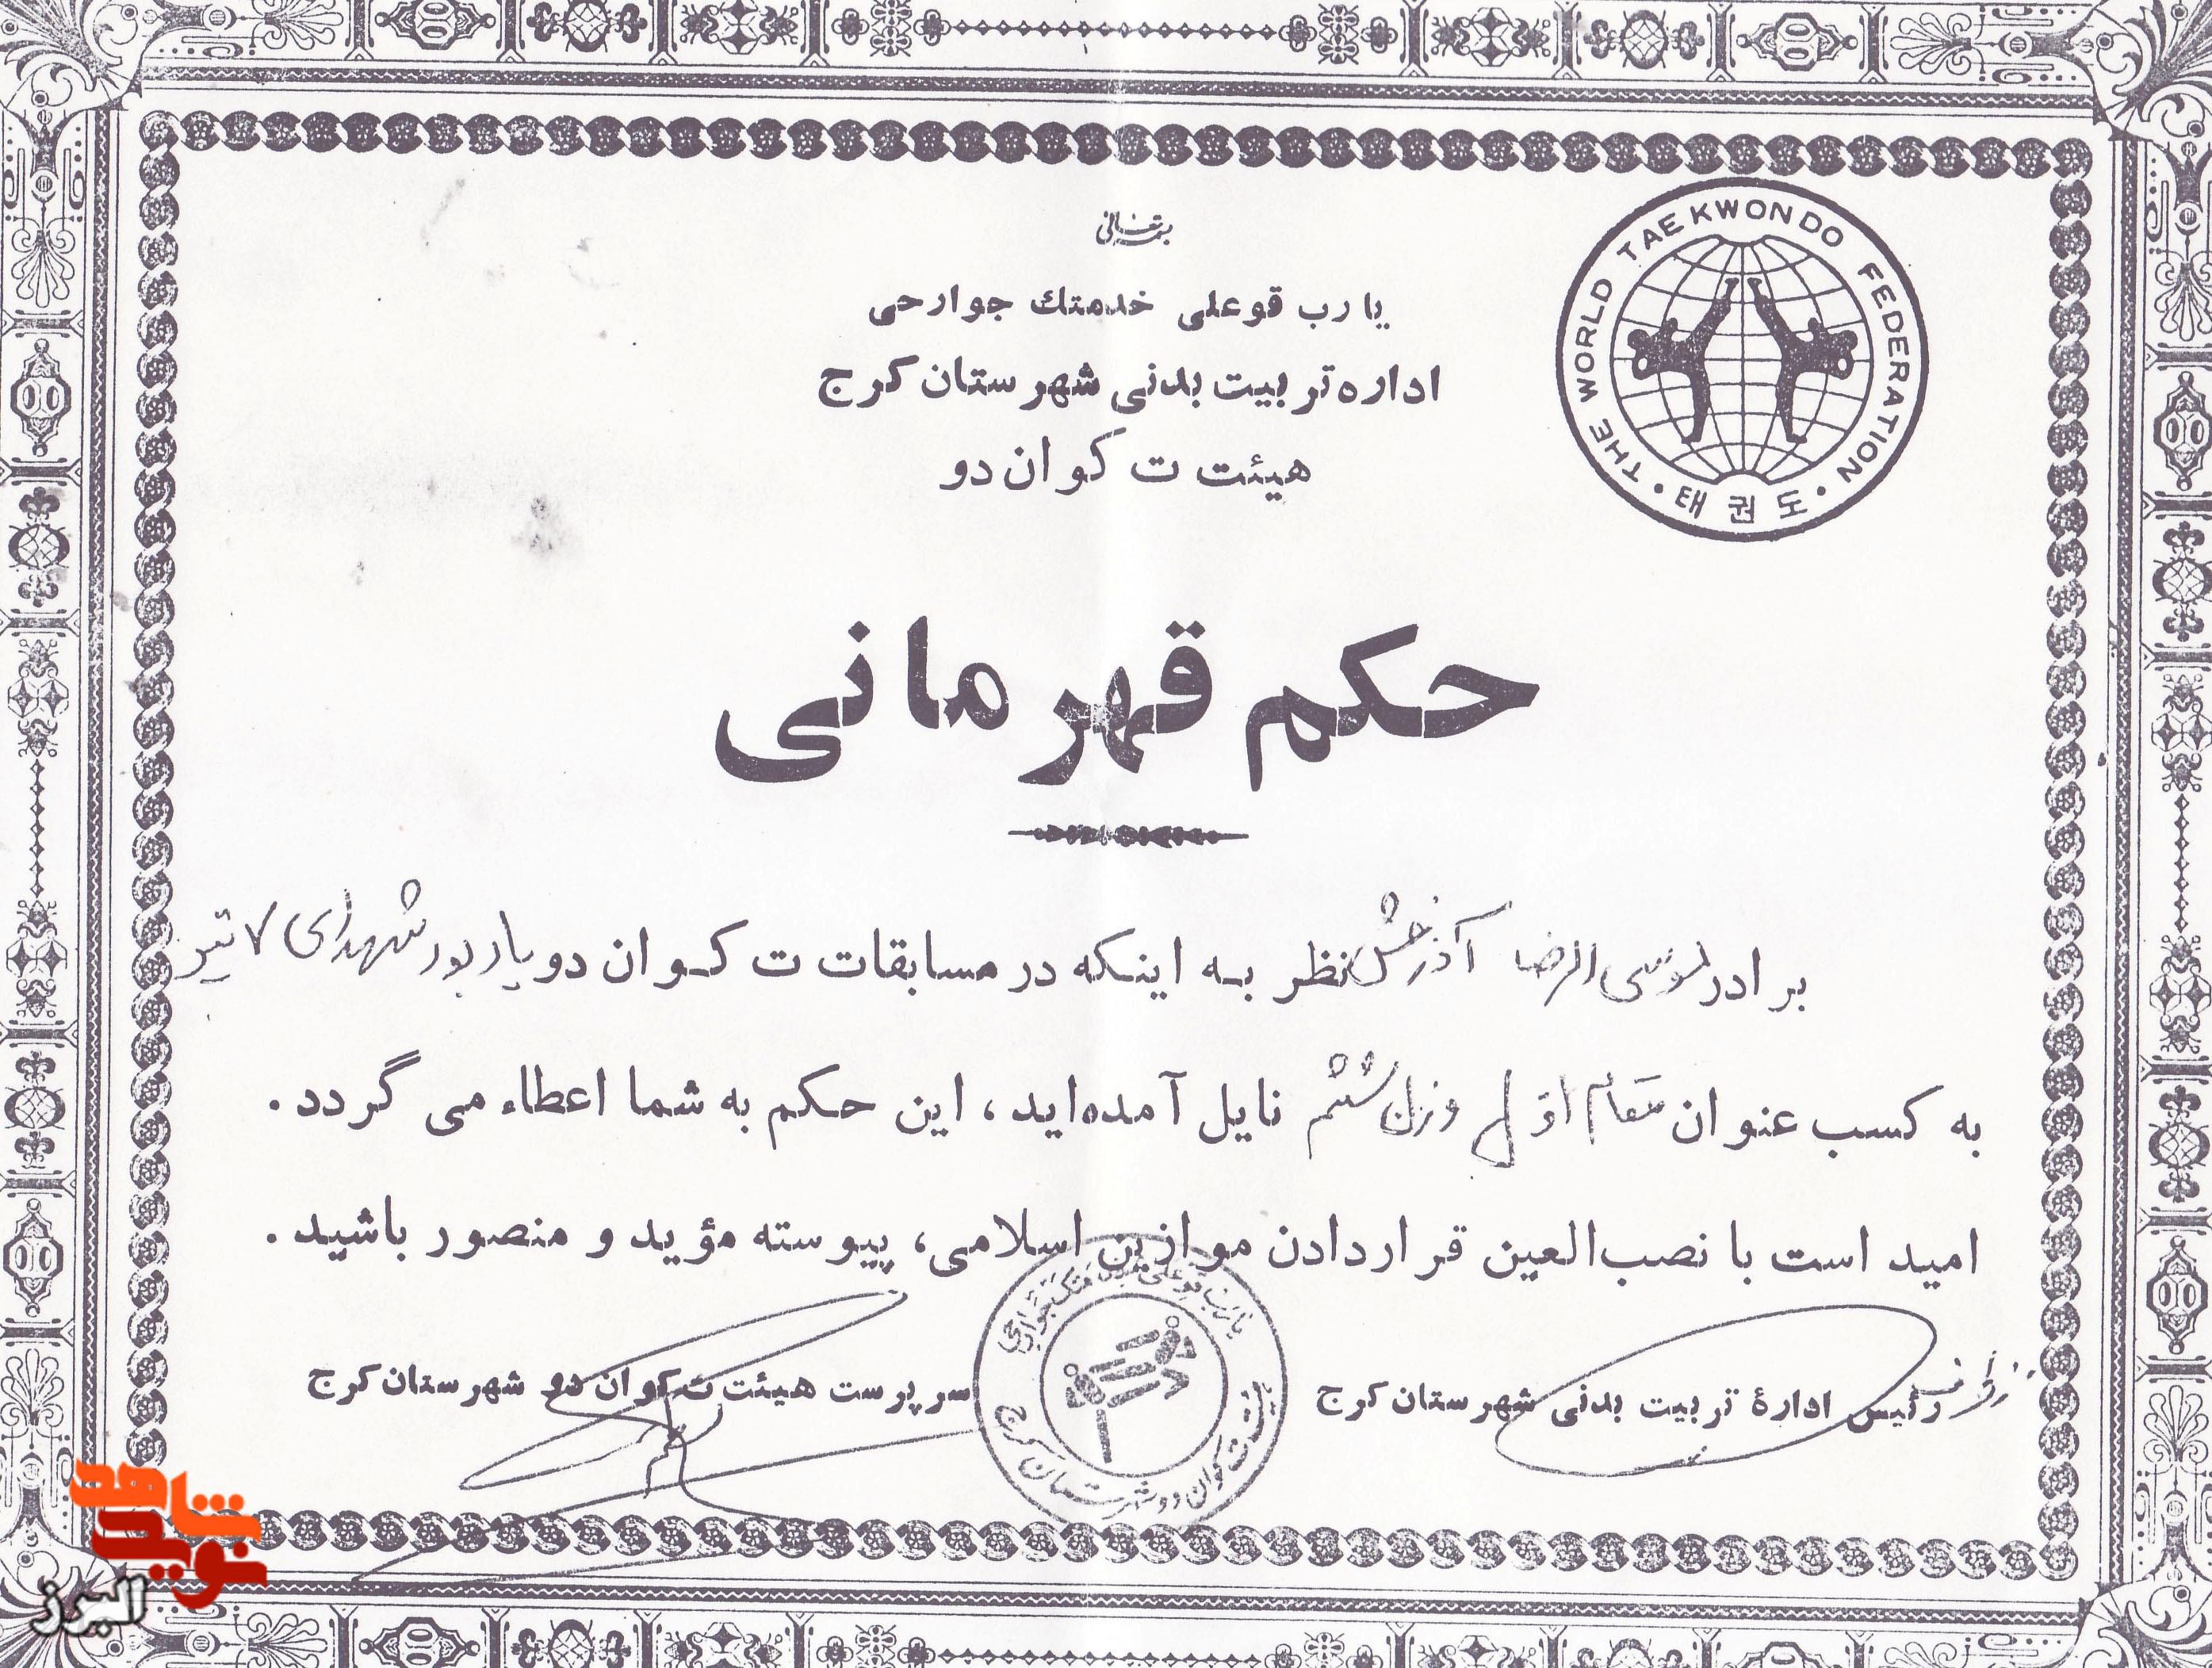 بسمه تعالی
یا رب قو علی خدمتك جوارحی
اداره تربیت بدنی شهرستان کرج
هیئت ت کوان دو
THE WORLD TAEKWONDO FEDERATION
태권도
حکم قهرمانی
برادر موسی الرضا آذرخش نظر به اینکه در مسابقات ت کوان دو یاربور شهدای ۷ تیر
به کسب عنوان مقام اوّل وزن ششم نایل آمده‌اید، این حکم به شما اعطاء می گردد.
امید است با نصب‌العین قراردادن موازین اسلامی، پیوسته مؤید و منصور باشید.
رئیس ادارهٔ تربیت بدنی شهرستان کرج
سرپرست هیئت ت کوان دو شهرستان کرج
یا رب قو علی خدمتك جوارحی
هیئت ت کوان دو شهرستان کرج
نوید شاهد
البرز